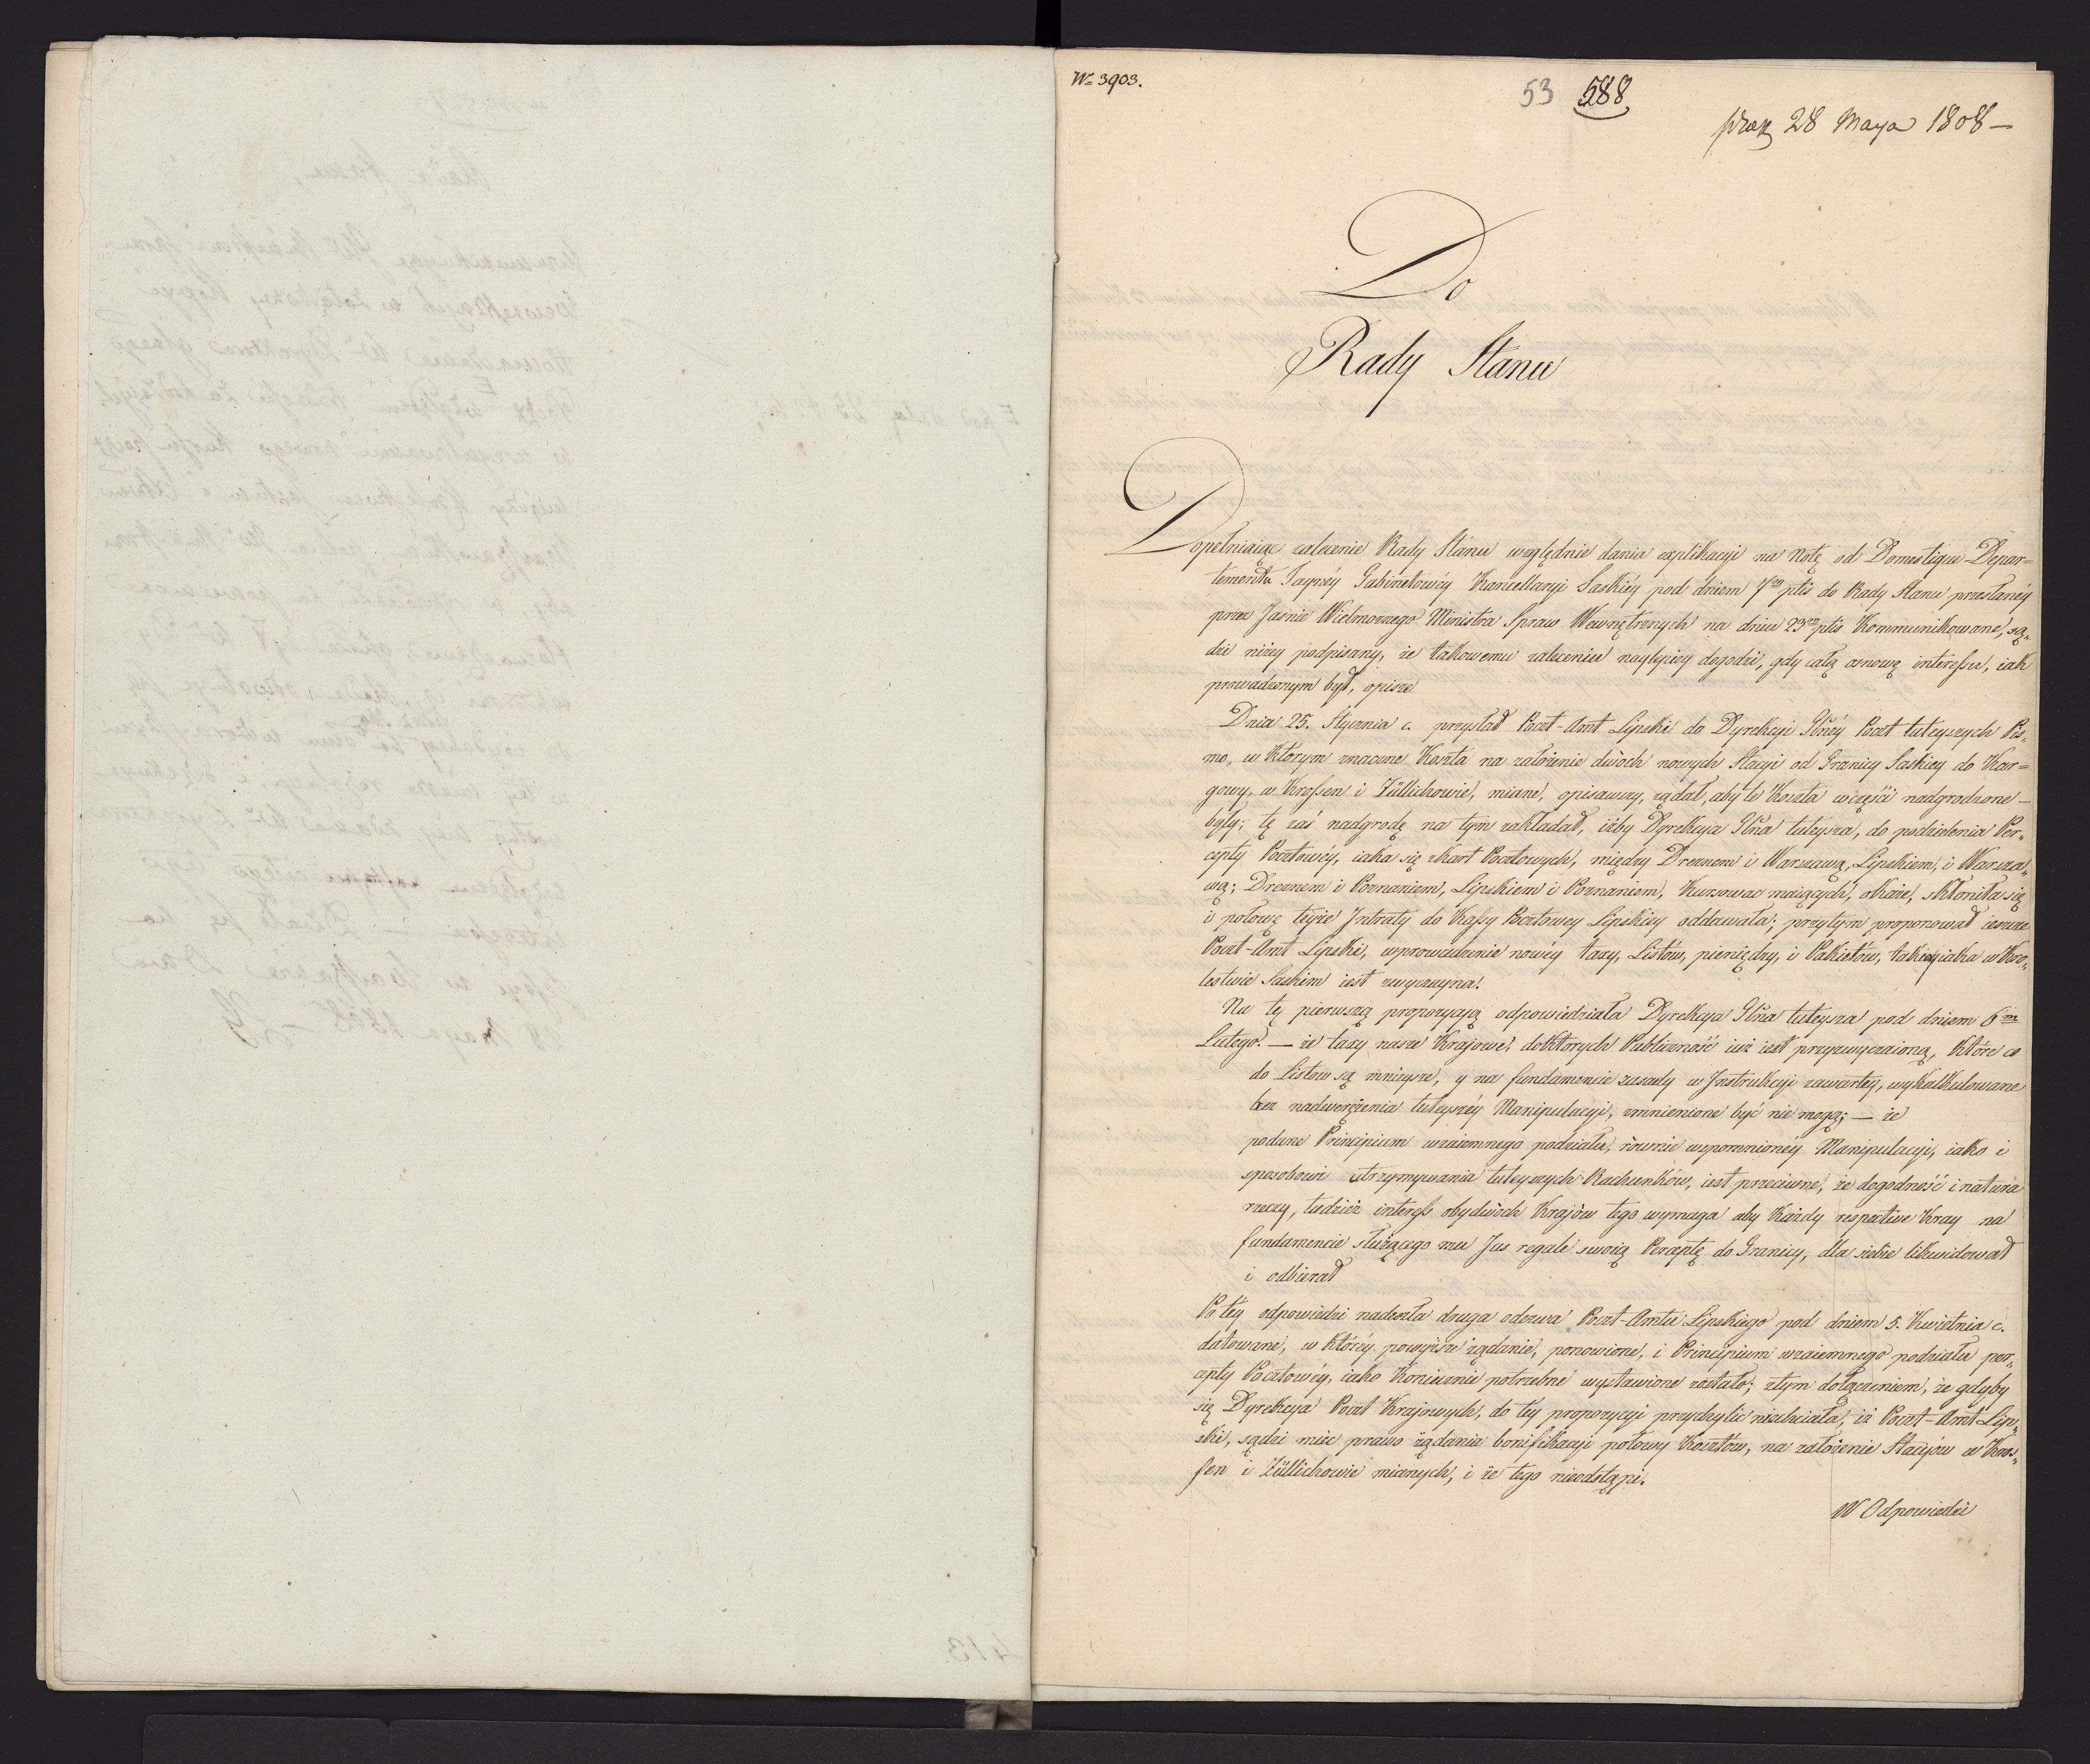 Nº 3903.
53 588
praes 28 Maya 1808 –
Do
Rady Stanu
Dopełniaiąc zalecenie Rady Stanu względnie dania explikacyi na Notę od Domestique Depar=
tementu Tayney Gabinetowéy Kancellaryi Saskiéy pod dniem 7m ptis do Rady Stanu przesłanéy
przez Jaśnie Wielmożnego Ministra Spraw Wewnętrznych na dniu 23m ptis Kommunikowane, są„
dzi niżey podpisany, że takowemu zaleceniu naylepiey dogodzi, gdy całą osnowę interessu, iak
prowadzonym był, opisze
Dnia 25. Stycznia c. przysłał Poczt-Amt Lipski do Dyrekcyi Głnéy Poczt tuteyszych Pis„
mo, w którym znaczne Koszta na założenie dwóch nowych Stacyi od Granicy Saskiey do Kar=
gowy, w Krossen i Züllichowie, miane, opisawszy, żądał, aby te Koszta wczęści nadgrodzone –
były; tę zaś nadgrodę na tym zakładał, iżby Dyrekcya Głna tuteysza, do podzielenia Per„
cepty Pocztowéy, iaka się z Kart Pocztowych, między Dreznem i Warszawą, Lipskiem, i Warsza„
wą; Dreznem i Poznaniem, Lipskiem i Poznaniem, Kursować maiących, okaże, skłoniła się
i połowę teyże Jntraty do Kassy Pocztowey Lipskiey oddawała; przytym proponował ieszcze
Poczt-Amt Lipski, wprowadzenie nowéy taxy, Listów, pieniędzy, i Pakietów, takiey iaka w Kró„
lestwie Saskim iest zwyczayna.
Na tę pierwszą propozycyą odpowiedziała Dyrekcya Głna tuteysza pod dniem 6m
Lutego. — że taxy nasze Krajowe, do których Publiczność iuż iest przyzwyczaioną, które co
do Listow są mnieysze, y na fundamencie zasady w Jnstrukcyi zawartey, wykalkulowane
bez nadwerężenia tuteyszéy Manipulacyi, zmnienione być nie mogą; — że
podane Principium wzaiemnego podziału, równie wspomnionéy Manipulacyi, iako i
sposobowi utrzymywania tuteyszych Rachunków, iest przeciwne, że dogodność i natura
rzeczy, tudzież interess obydwóch Krajów tego wymaga aby Każdy respective Kray na
fundamencie służącego mu Jus regale swoią Perceptę do Granicy, dla siebie likwidował
i odbierał
Po téy odpowiedzi nadeszła druga odezwa Poczt-Amtu Lipskiego pod dniem 5. Kwietnia c.
datowane, w któréy powyższe żądanie, ponowione, i Principium wzaiemnego podziału per„
cepty Pocztowéy, iako Koniecznie potrzebne wystawione zostało; ztym dołączeniem, że gdyby
się Dyrekcya Poczt Krajowych, do tey propozycyi przychylić niechciała, iż Poczt-Amt Lip„
ski, sądzi mieć prawo żądania bonifikacyi połowy Kosztów, na założenie Stacyów w Kros„
sen i Züllichowie mianych, i że tego nieodstąpi.
W Odpowiedzi